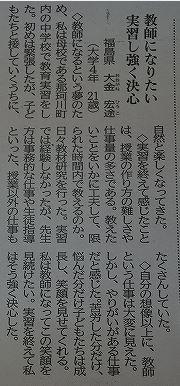 教師になりたい
実習し強く決心
福島県 大金 宏途
(大学4年 21歳)
教師になるという夢のた
め、私は母校である那珂川町
内の中学校で教育実習をし
た。初めは緊張したが、子ど
もたちと接していくうちに、
自然と楽しくなってきた。
実習を終えて感じたこと
は、授業の作り方の難しさや
仕事量の多さである。教えた
いことをいかに工夫して、限
られた時間内で教えるか。毎
日々教材研究を行った。実習
では経験しなかったが、先生
方は事務的な仕事や生徒指導
といった、授業以外の仕事も
たくさんしていた。
自分の想像以上に、教師
という仕事は大変に見えた。
しかし、やりがいがある仕事
だと感じた。自分した分だけ、
悩んだ分だけ子どもたちは成
長し、笑顔を見せてくれる。
私は教師になってこの笑顔を
見続けたい。実習を終えて私
はそう強く決心した。